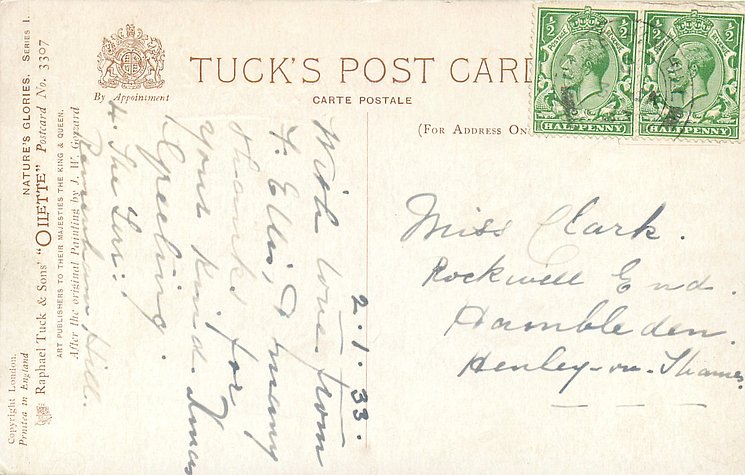 TUCK'S POST CARD
CARTE POSTALE
By Appointment
(FOR ADDRESS ON
½ ½
POSTAGE
HALFPENNY
½ ½
HALFPENNY
NATURE'S GLORIES. SERIES I.
Raphael Tuck & Sons' "OILETTE" Postcard No. 3307
ART PUBLISHERS TO THEIR MAJESTIES THE KING & QUEEN.
After the original Painting by J. W. Gozzard
Copyright London.
Printed in England
4. The
Hill.
2.1.33.
With love from
F. Ellis, & many
thanks for
your kind Xmas
Greeting.
Miss Clark.
Rockwell End.
Hambleden.
Henley-on-Thames